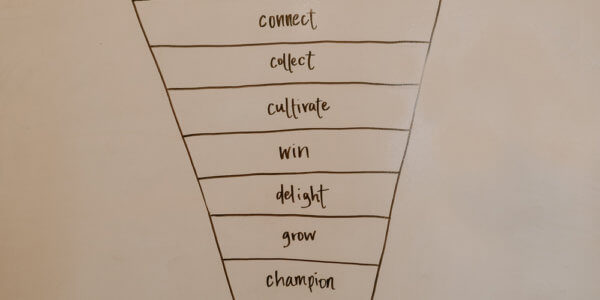 connect
collect
cultivate
win
delight
grow
champion